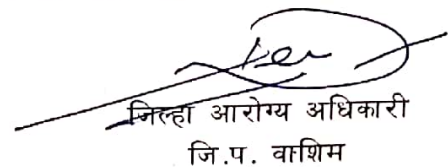 जिल्हा आरोग्य अधिकारी
जि.प. वाशिम